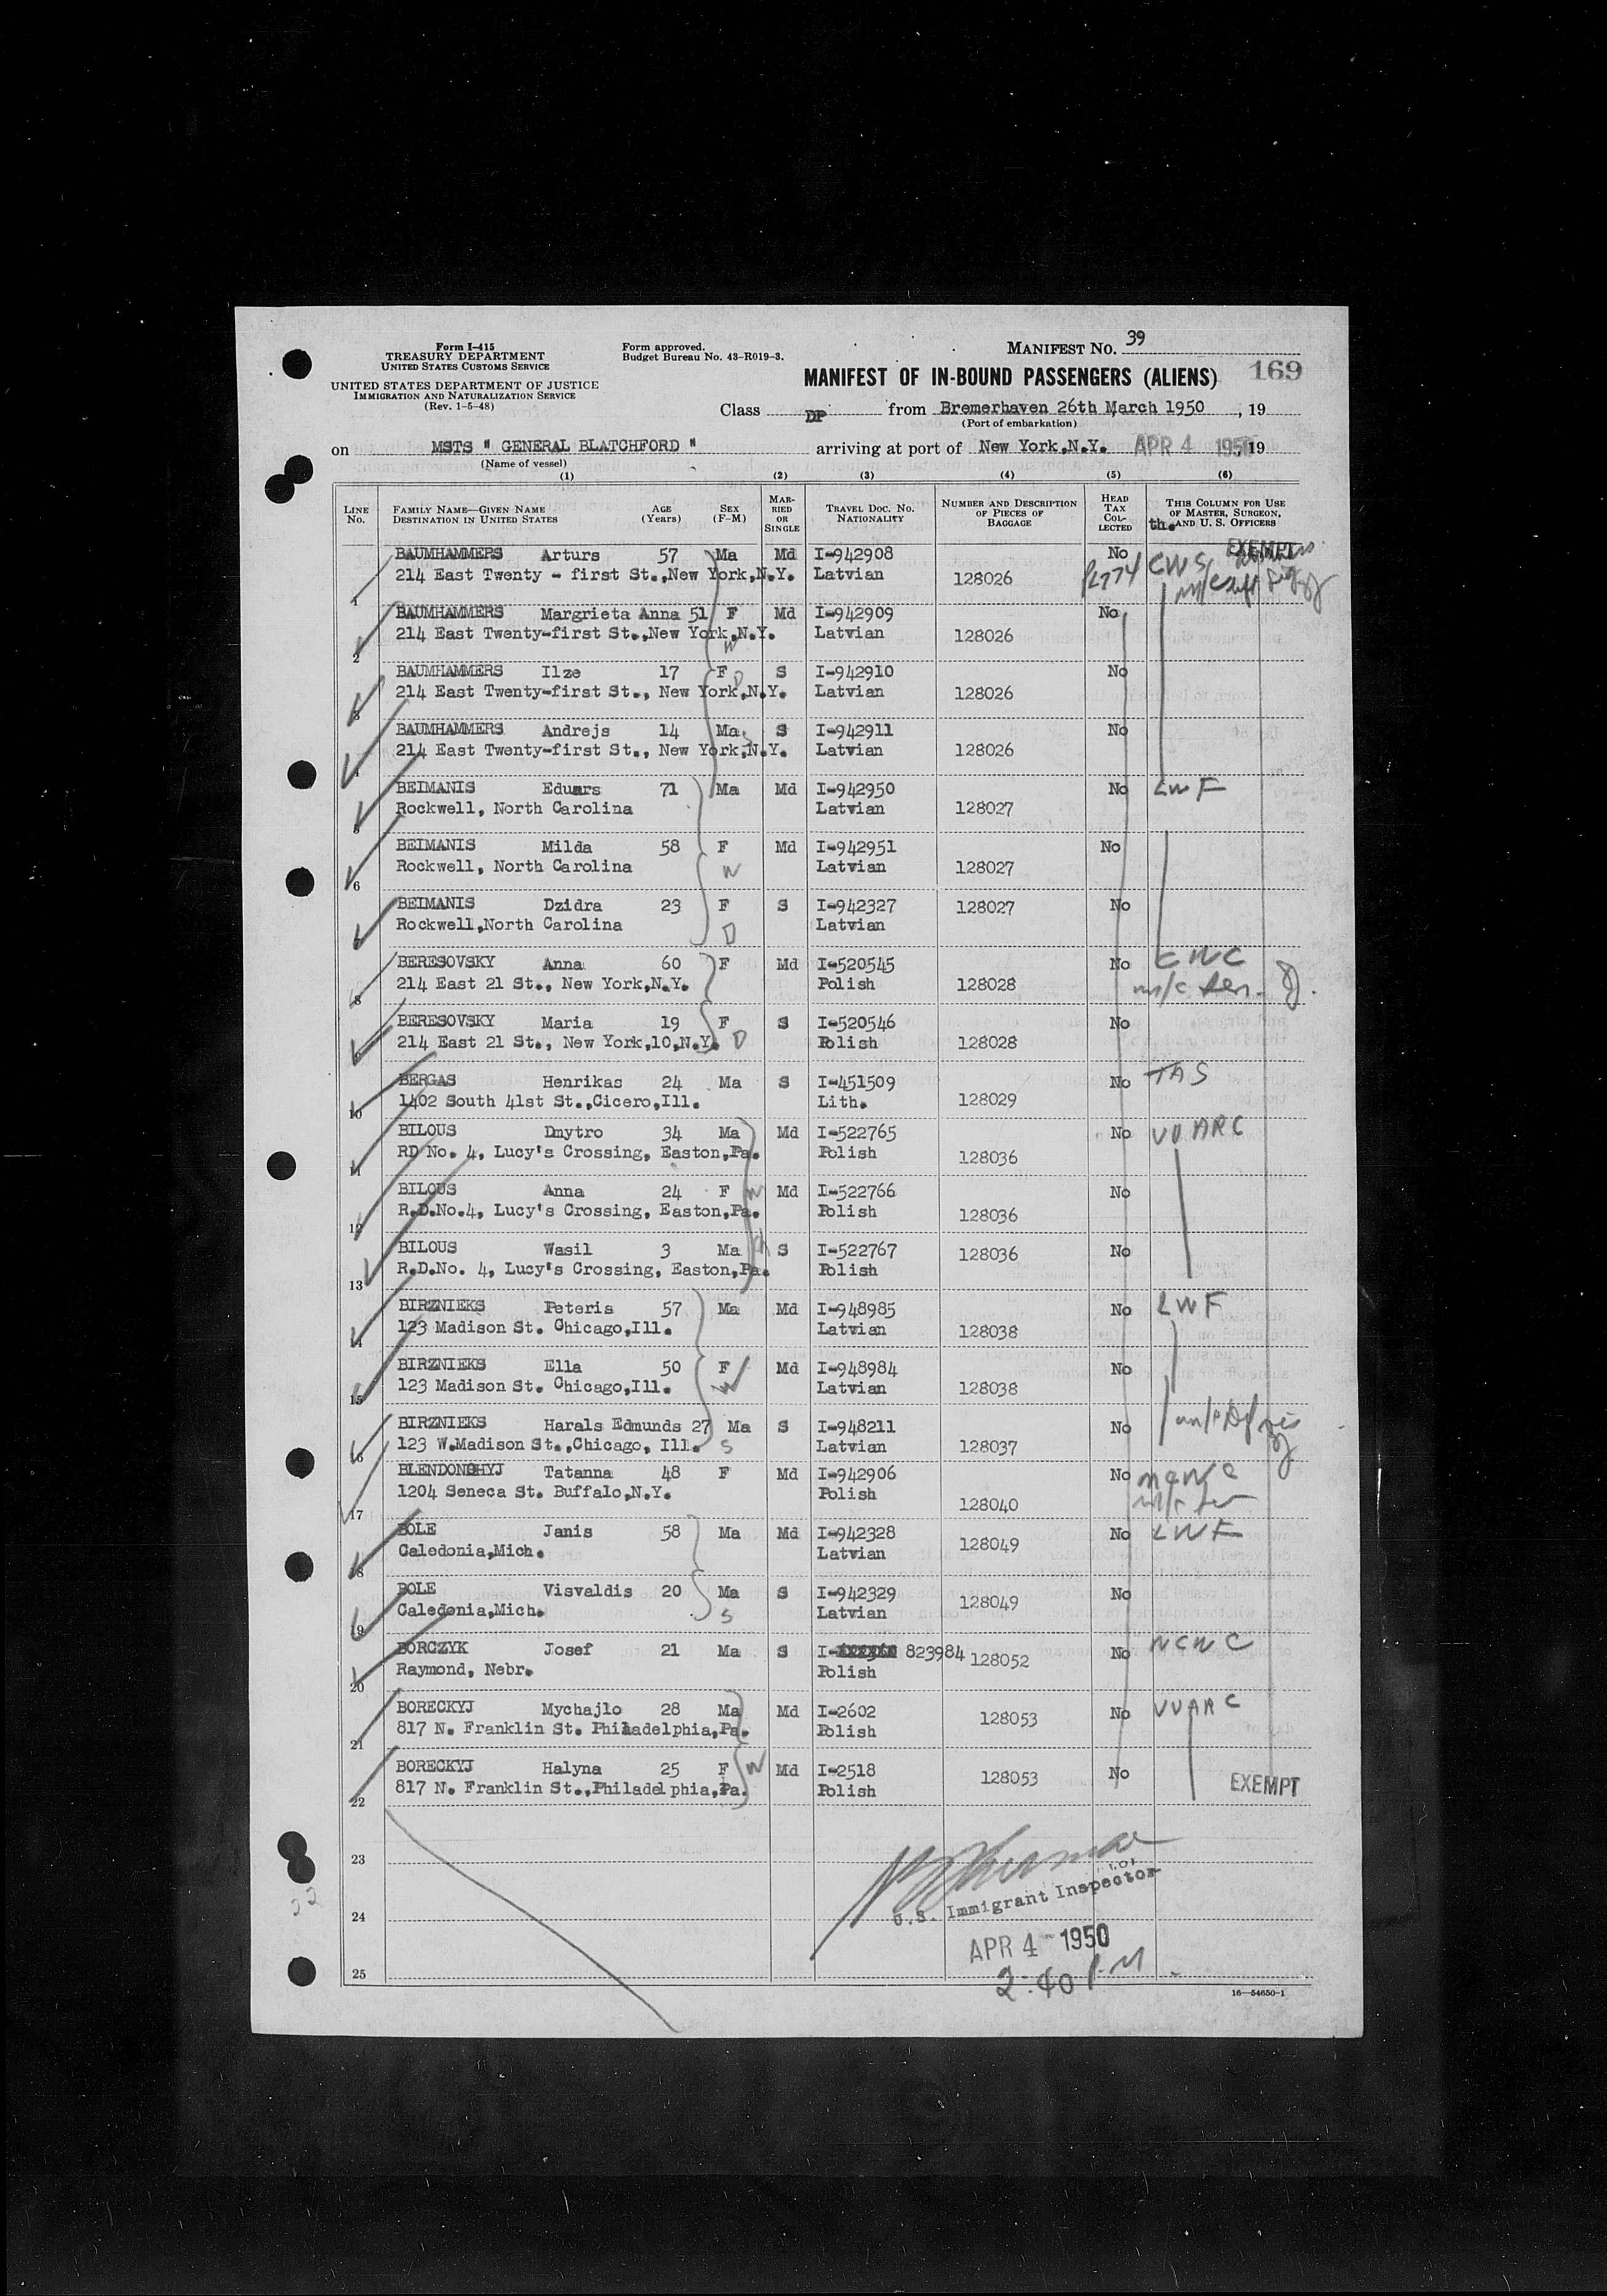 Form I-415
TREASURY DEPARTMENT
UNITED STATES CUSTOMS SERVICE
UNITED STATES DEPARTMENT OF JUSTICE
IMMIGRATION AND NATURALIZATION SERVICE
(Rev. 1-5-48)
Form approved.
Budget Bureau No. 43-R019-3.
MANIFEST NO. 39
MANIFEST OF IN-BOUND PASSENGERS (ALIENS) 169
Class DP from Bremerhaven 26th March 1950, 19
(Port of embarkation)
on MSTS " GENERAL BLATCHFORD " arriving at port of New York,N.Y. APR 4 1950, 19
(Name of vessel)
(1) (2) (3) (4) (5) (6)
LINE NO. FAMILY NAME—GIVEN NAME DESTINATION IN UNITED STATES AGE (Years) SEX (F-M) MARRIED OR SINGLE TRAVEL DOC. NO. NATIONALITY NUMBER AND DESCRIPTION OF PIECES OF BAGGAGE HEAD TAX COLLECTED THIS COLUMN FOR USE OF MASTER, SURGEON, AND U. S. OFFICERS
th.
BAUMHAMMERS Arturs 57 Ma Md I-942908 No EXEMPT
214 East Twenty - first St.,New York,N.Y. Latvian 128026 PL774 CWS
1
BAUMHAMMERS Margrieta Anna 51 F Md I-942909 No
214 East Twenty-first St.,New York,N.Y. Latvian 128026
2 W
BAUMHAMMERS Ilze 17 F D S I-942910 No
214 East Twenty-first St., New York,N.Y. Latvian 128026
3
BAUMHAMMERS Andrejs 14 Ma S S I-942911 No
214 East Twenty-first St., New York,N.Y. Latvian 128026
4
BEIMANIS Eduars 71 Ma Md I-942950 No LWF
Rockwell, North Carolina Latvian 128027
5
BEIMANIS Milda 58 F Md I-942951 No
Rockwell, North Carolina W Latvian 128027
6
BEIMANIS Dzidra 23 F S I-942327 128027 No
Rockwell,North Carolina D Latvian
7
BERESOVSKY Anna 60 F Md I-520545 No
214 East 21 St., New York,N.Y. Polish 128028
8
BERESOVSKY Maria 19 F S I-520546 No
214 East 21 St., New York,10,N.Y. D Polish 128028
9
BERGAS Henrikas 24 Ma S I-451509 No
1402 South 41st St.,Cicero,Ill. Lith. 128029
10
BILOUS Dmytro 34 Ma Md I-522765 No
RD No. 4, Lucy's Crossing, Easton,Pa. Polish 128036
11
BILOUS Anna 24 F W Md I-522766 No
R.D.No.4, Lucy's Crossing, Easton,Pa. Polish 128036
12
BILOUS Wasil 3 Ma S I-522767 128036 No
R.D.No. 4, Lucy's Crossing, Easton,Pa. Polish
13
BIRZNIEKS Peteris 57 Ma Md I-948985 No LWF
123 Madison St. Chicago,Ill. Latvian 128038
14
BIRZNIEKS Ella 50 F Md I-948984 No
123 Madison St. Chicago,Ill. W Latvian 128038
15
BIRZNIEKS Harals Edmunds 27 Ma S I-948211 No
123 W.Madison St.,Chicago, Ill. S Latvian 128037
16
BLENDONGHYJ Tatanna 48 F Md I-942906 No
1204 Seneca St. Buffalo,N.Y. Polish 128040
17
BOLE Janis 58 Ma Md I-942328 128049 No LWF
Caledonia,Mich. Latvian
18
BOLE Visvaldis 20 Ma S I-942329 128049 No
Caledonia,Mich. S Latvian
19
BORCZYK Josef 21 Ma S I- 823984 128052 No NCWC
Raymond, Nebr. Polish
20
BORECKYJ Mychajlo 28 Ma Md I-2602 128053 No
817 N. Franklin St. Philadelphia,Pa. Polish
21
BORECKYJ Halyna 25 F W Md I-2518 128053 No
817 N. Franklin St.,Philadelphia,Pa. Polish EXEMPT
22
23
24
25
U.S. Immigrant Inspector
APR 4 - 1950
2:40 P.M.
16—54650-1